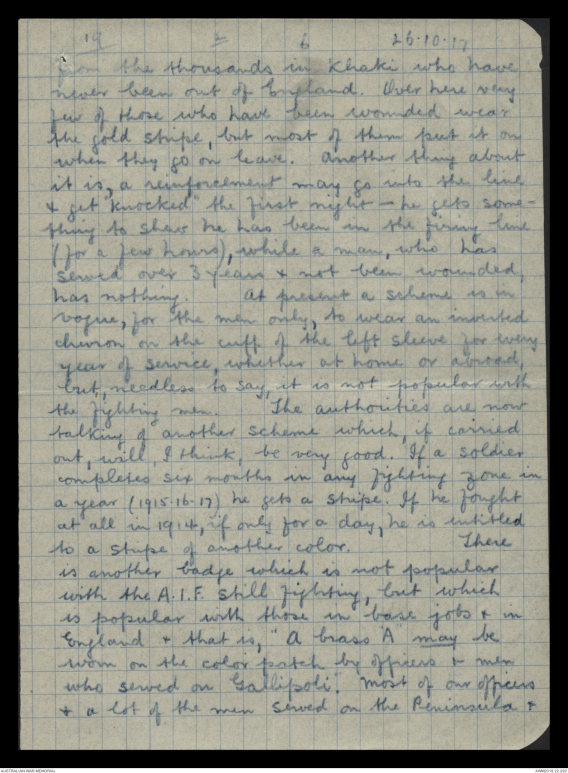 19 2 6 26.10.17
from the thousands in khaki who have
never been out of England. Over here very
few of those who have been wounded wear
the gold stripe, but most of them put it on
when they go on leave. Another thing about
it is, a reinforcement may go into the line
& get "knocked" the first night - he gets some-
thing to shew he has been in the firing line
(for a few hours), while a man, who has
served over 3 years & not been wounded,
has nothing. At present a scheme is in
vogue, for the men only, to wear an inverted
chevron on the cuff of the left sleeve for every
year of service, whether at home or abroad,
but, needless to say, it is not popular with
the fighting men. The authorities are now
talking of another scheme which, if carried
out, will, I think, be very good. If a soldier
completes six months in any fighting zone in
a year (1915-16-17) he gets a stripe. If he fought
at all in 1914, if only for a day, he is entitled
to a stripe of another color. There
is another badge which is not popular
with the A.I.F. still fighting, but which
is popular with those in base jobs & in
England & that is, "A brass 'A' may be
worn on the color patch by officers & men
who served on Gallipoli". Most of our officers
& a lot of the men served on the Peninsula &
AUSTRALIAN WAR MEMORIAL